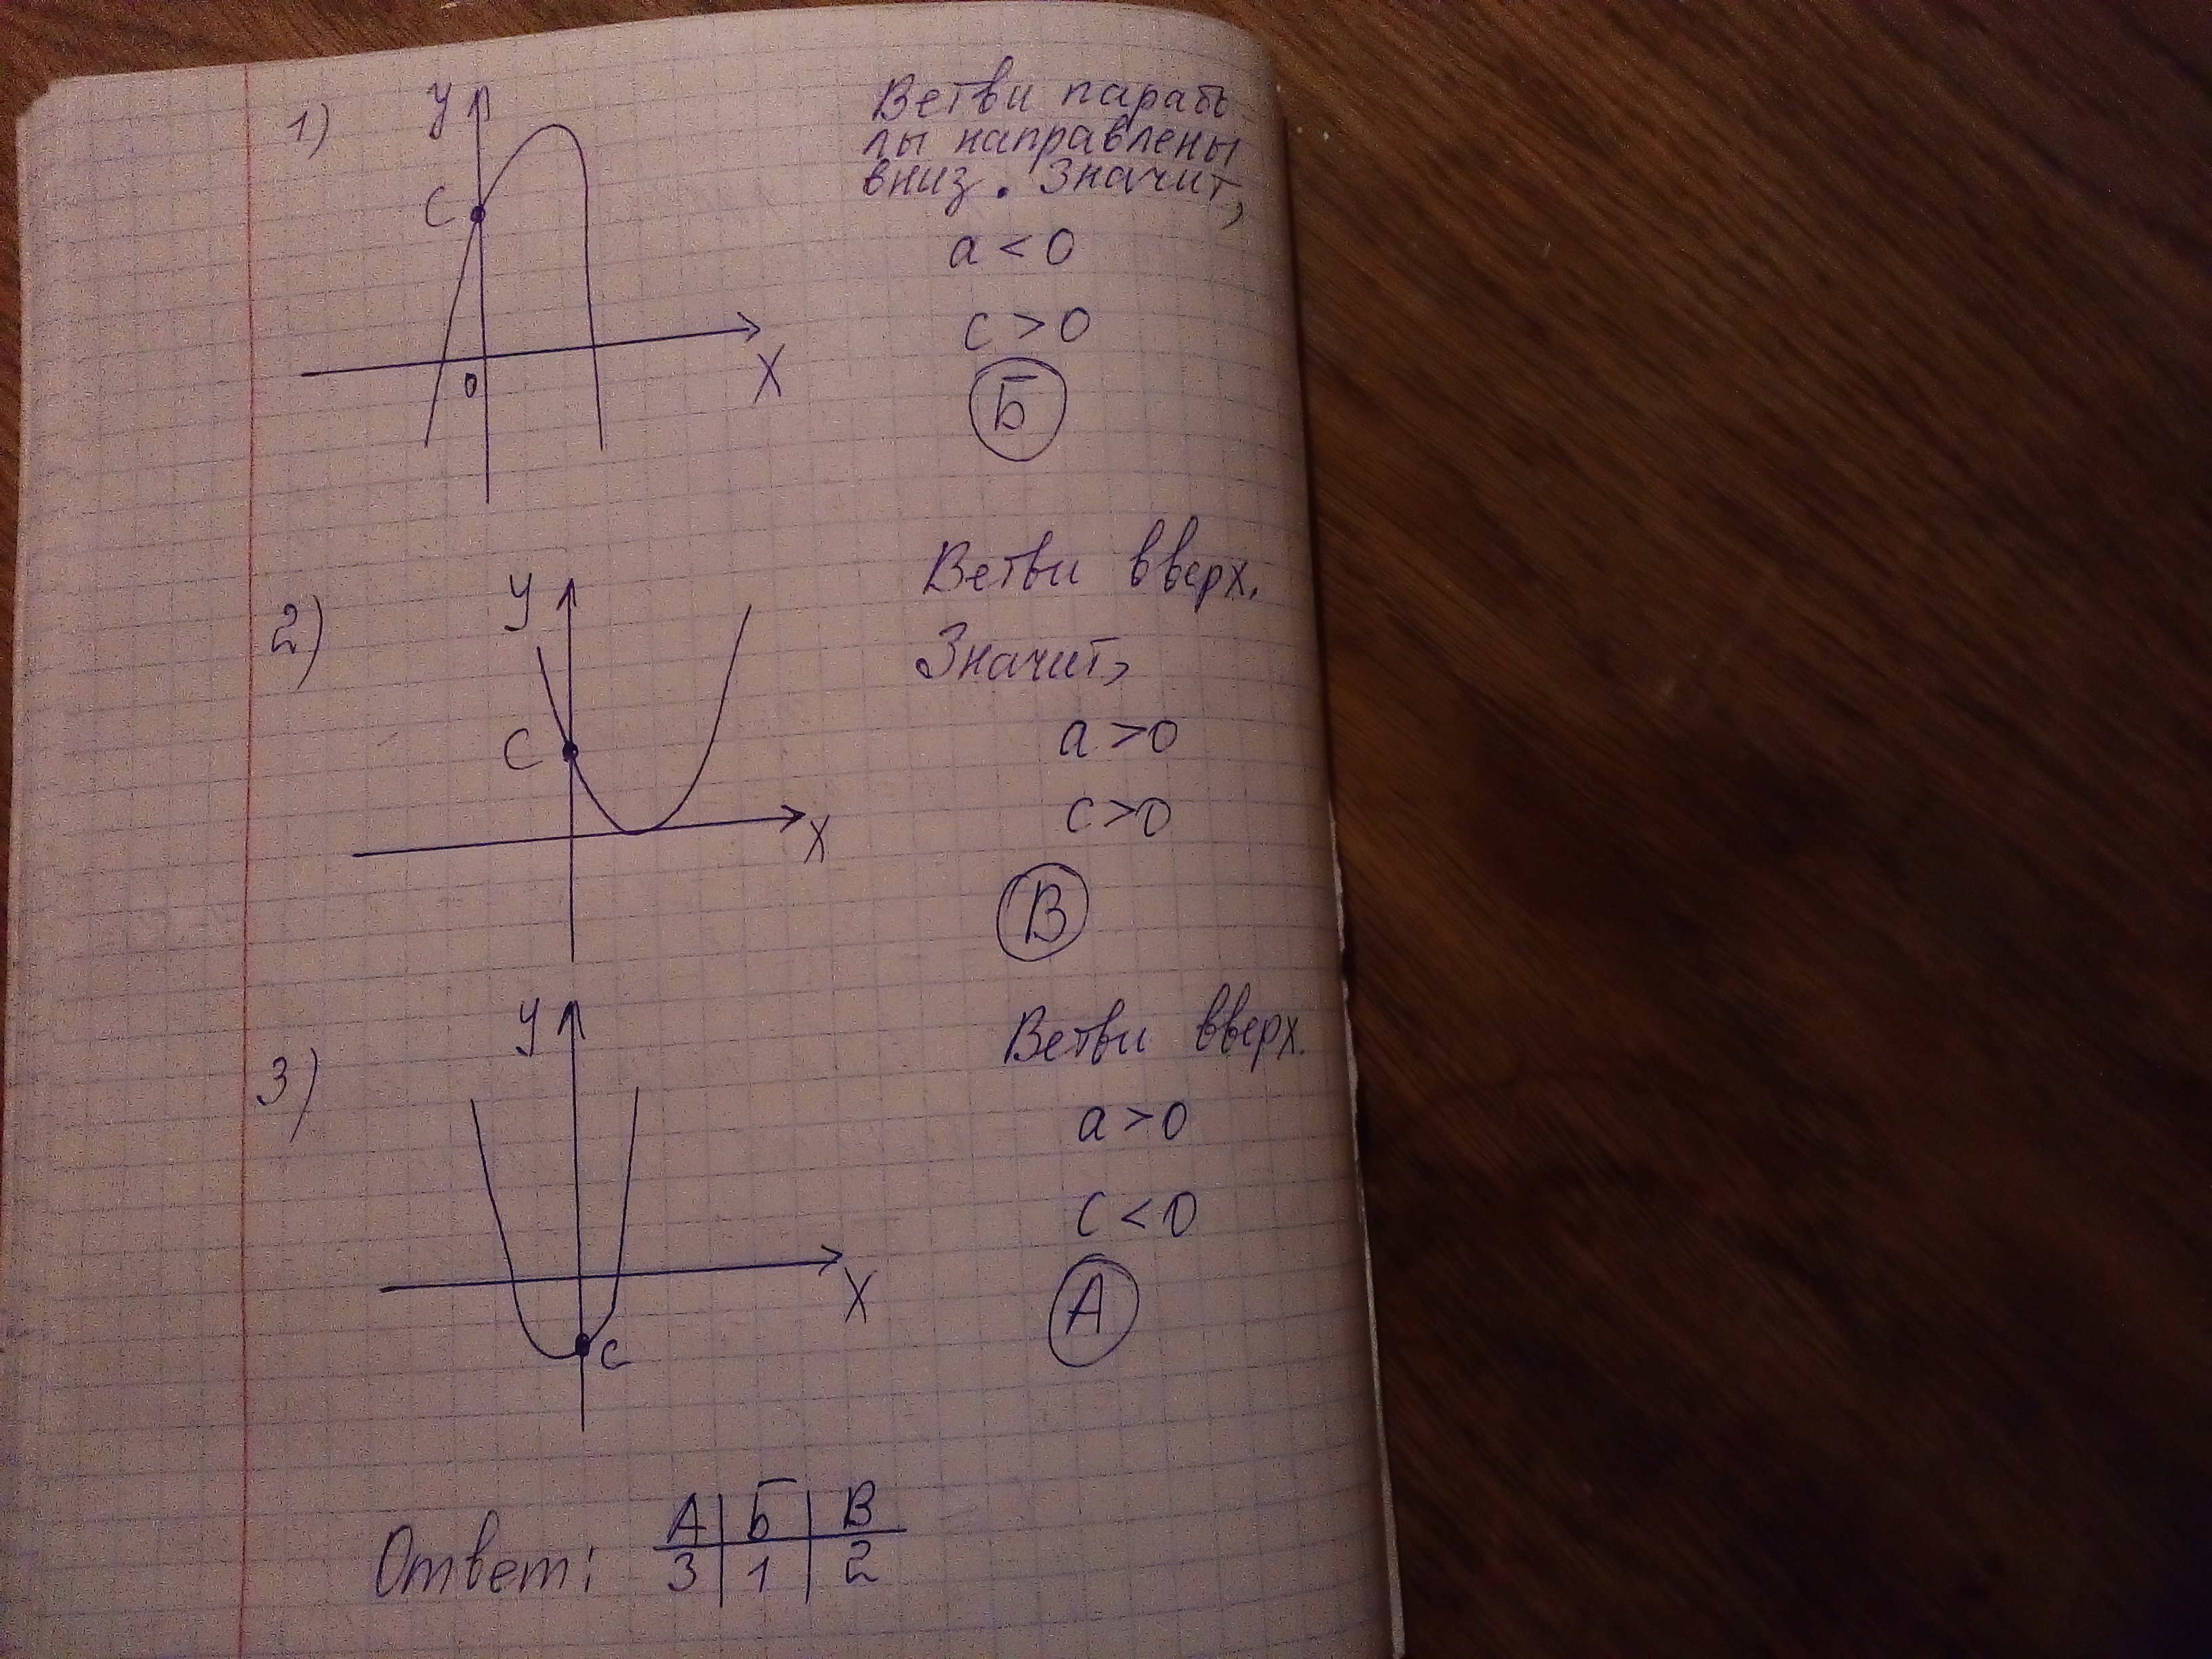 1)
y
C
0
X
Ветви парабо-
лы направлены
вниз. Значит,
a < 0
c > 0
Б
2)
y
C
X
Ветви вверх.
Значит,
a > 0
c > 0
В
3)
y
X
C
Ветви вверх.
a > 0
c < 0
А
Ответ:
А Б В
3 1 2